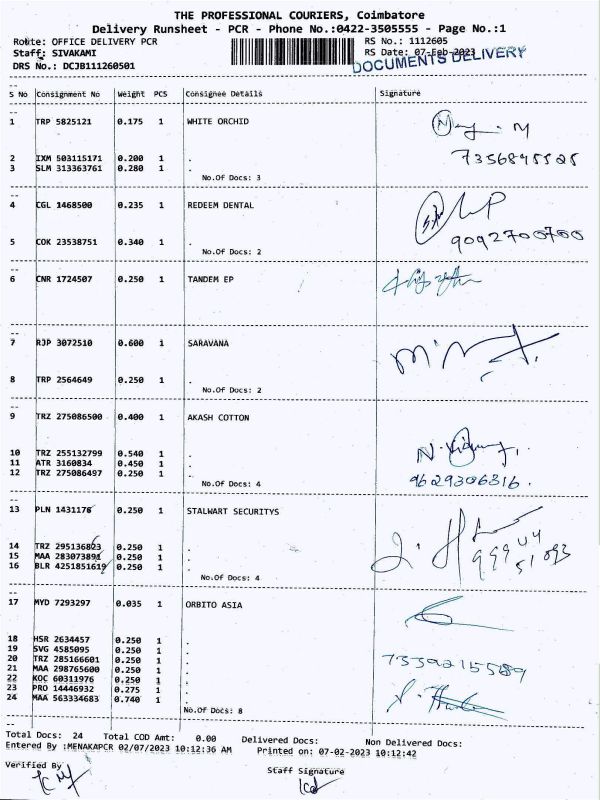 THE PROFESSIONAL COURIERS, Coimbatore
Delivery Runsheet - PCR - Phone No.:0422-3505555 - Page No.:1
Route: OFFICE DELIVERY PCR RS No.: 1112605
Staff: SIVAKAMI RS Date: 07-Feb-2023
DOCUMENTS DELIVERY
DRS No.: DCJB111260501
S No Consignment No Weight PCS Consignee Details Signature
1 TRP 5825121 0.175 1 WHITE ORCHID
2 IXM 503115171 0.200 1 .
3 SLM 313363761 0.280 1 .
No.Of Docs: 3
4 CGL 1468500 0.235 1 REDEEM DENTAL
9092700700
5 COK 23538751 0.340 1 .
No.Of Docs: 2
6 CNR 1724507 0.250 1 TANDEM EP
7 RJP 3072510 0.600 1 SARAVANA
8 TRP 2564649 0.250 1 .
No.Of Docs: 2
9 TRZ 275086500 0.400 1 AKASH COTTON
10 TRZ 255132799 0.540 1 .
11 ATR 3160834 0.450 1 .
12 TRZ 275086497 0.250 1 .
No.Of Docs: 4
9629306316.
13 PLN 1431176 0.250 1 STALWART SECURITYS
14 TRZ 295136823 0.250 1 .
15 MAA 283073891 0.250 1 .
16 BLR 4251851619 0.250 1 .
No.Of Docs: 4
17 MYD 7293297 0.035 1 ORBITO ASIA
18 HSR 2634457 0.250 1 .
19 SVG 4585095 0.250 1 .
20 TRZ 285166601 0.250 1 .
21 MAA 298765600 0.250 1 .
22 KOC 60311976 0.250 1 .
23 PRO 14446932 0.275 1 .
24 MAA 563334683 0.740 1 .
No.Of Docs: 8
Total Docs: 24 Total COD Amt: 0.00 Delivered Docs: Non Delivered Docs:
Entered By :MENAKAPCR 02/07/2023 10:12:36 AM Printed on: 07-02-2023 10:12:42
Verified By Staff Signature